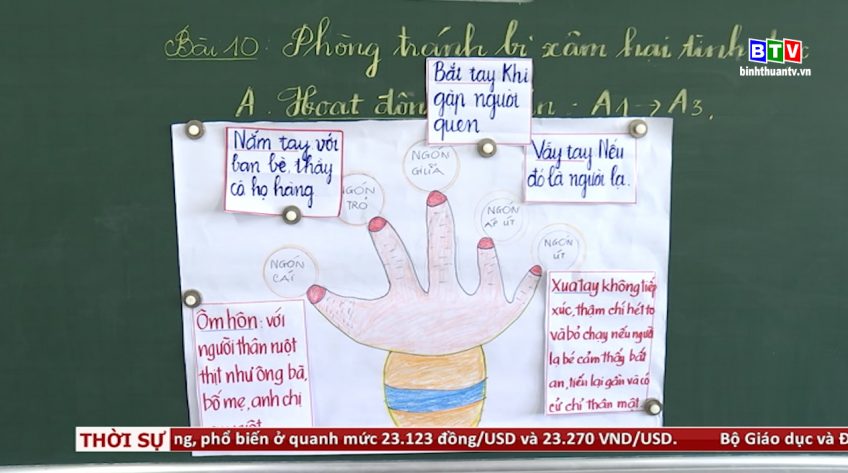 Bài 10: Phòng tránh bị xâm hại tình
BTV
binhthuantv.vn
A. Hoạt độn - A1 → A3.
Bắt tay Khi
gặp người
quen
Nắm tay với
bạn bè, thầy
cô họ hàng
Vẫy tay Nếu
đó là người lạ.
NGÓN
GIỮA
NGÓN
TRỎ
NGÓN
ÁP ÚT
NGÓN
ÚT
NGÓN
CÁI
Ôm hôn: với
người thân ruột
thịt như ông bà,
bố mẹ, anh chị
Xua tay không tiếp
xúc, thậm chí hét to
và bỏ chạy nếu người
lạ bé cảm thấy bất
an, tiến lại gần và có
cử chỉ thân mật
THỜI SỰ
ng, phổ biến ở quanh mức 23.123 đồng/USD và 23.270 VND/USD. Bộ Giáo dục và Đ